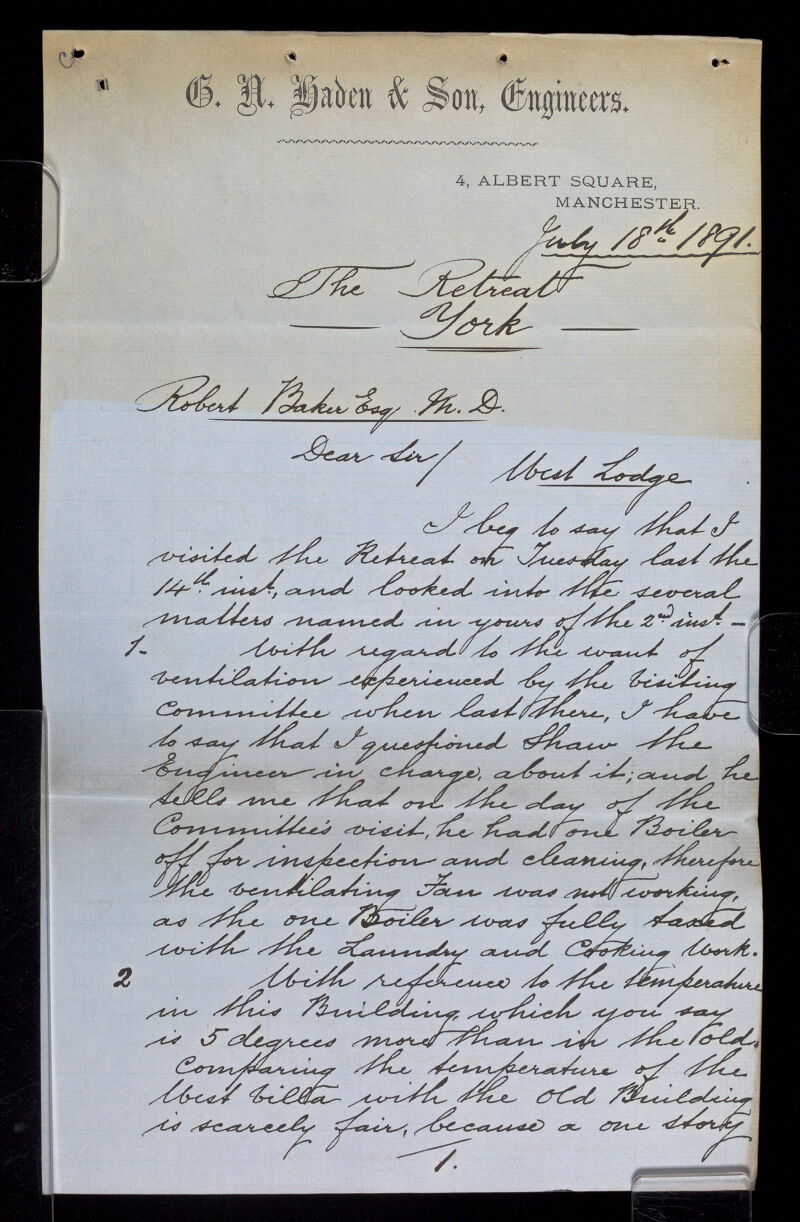 G. N. Haden & Son, Engineers.
4, ALBERT SQUARE,
MANCHESTER.
July 18th 1891.
The Retreat
York
Robert Baker Esq. M. D.
Dear Sir/
West Lodge
I beg to say that I
visited the Retreat on Tuesday last the
14th inst., and looked into the several
matters named in yours of the 2nd inst. -
1- With regard to the want of
ventilation experienced by the Visiting
Committee when last there, I have
to say that I questioned Shaw the
Engineer in charge, about it; and he
tells me that on the day of the
Committee's visit, he had one Boiler
off for inspection and cleaning, therefore
the ventilating Fan was not working,
as the one Boiler was fully taxed
with the Laundry and Cooking Work.
2 With reference to the temperature
in this Building, which you say
is 5 degrees more than in the old.
Comparing the temperature of the
West Villa with the Old Building
is scarcely fair, because a one story
/1.